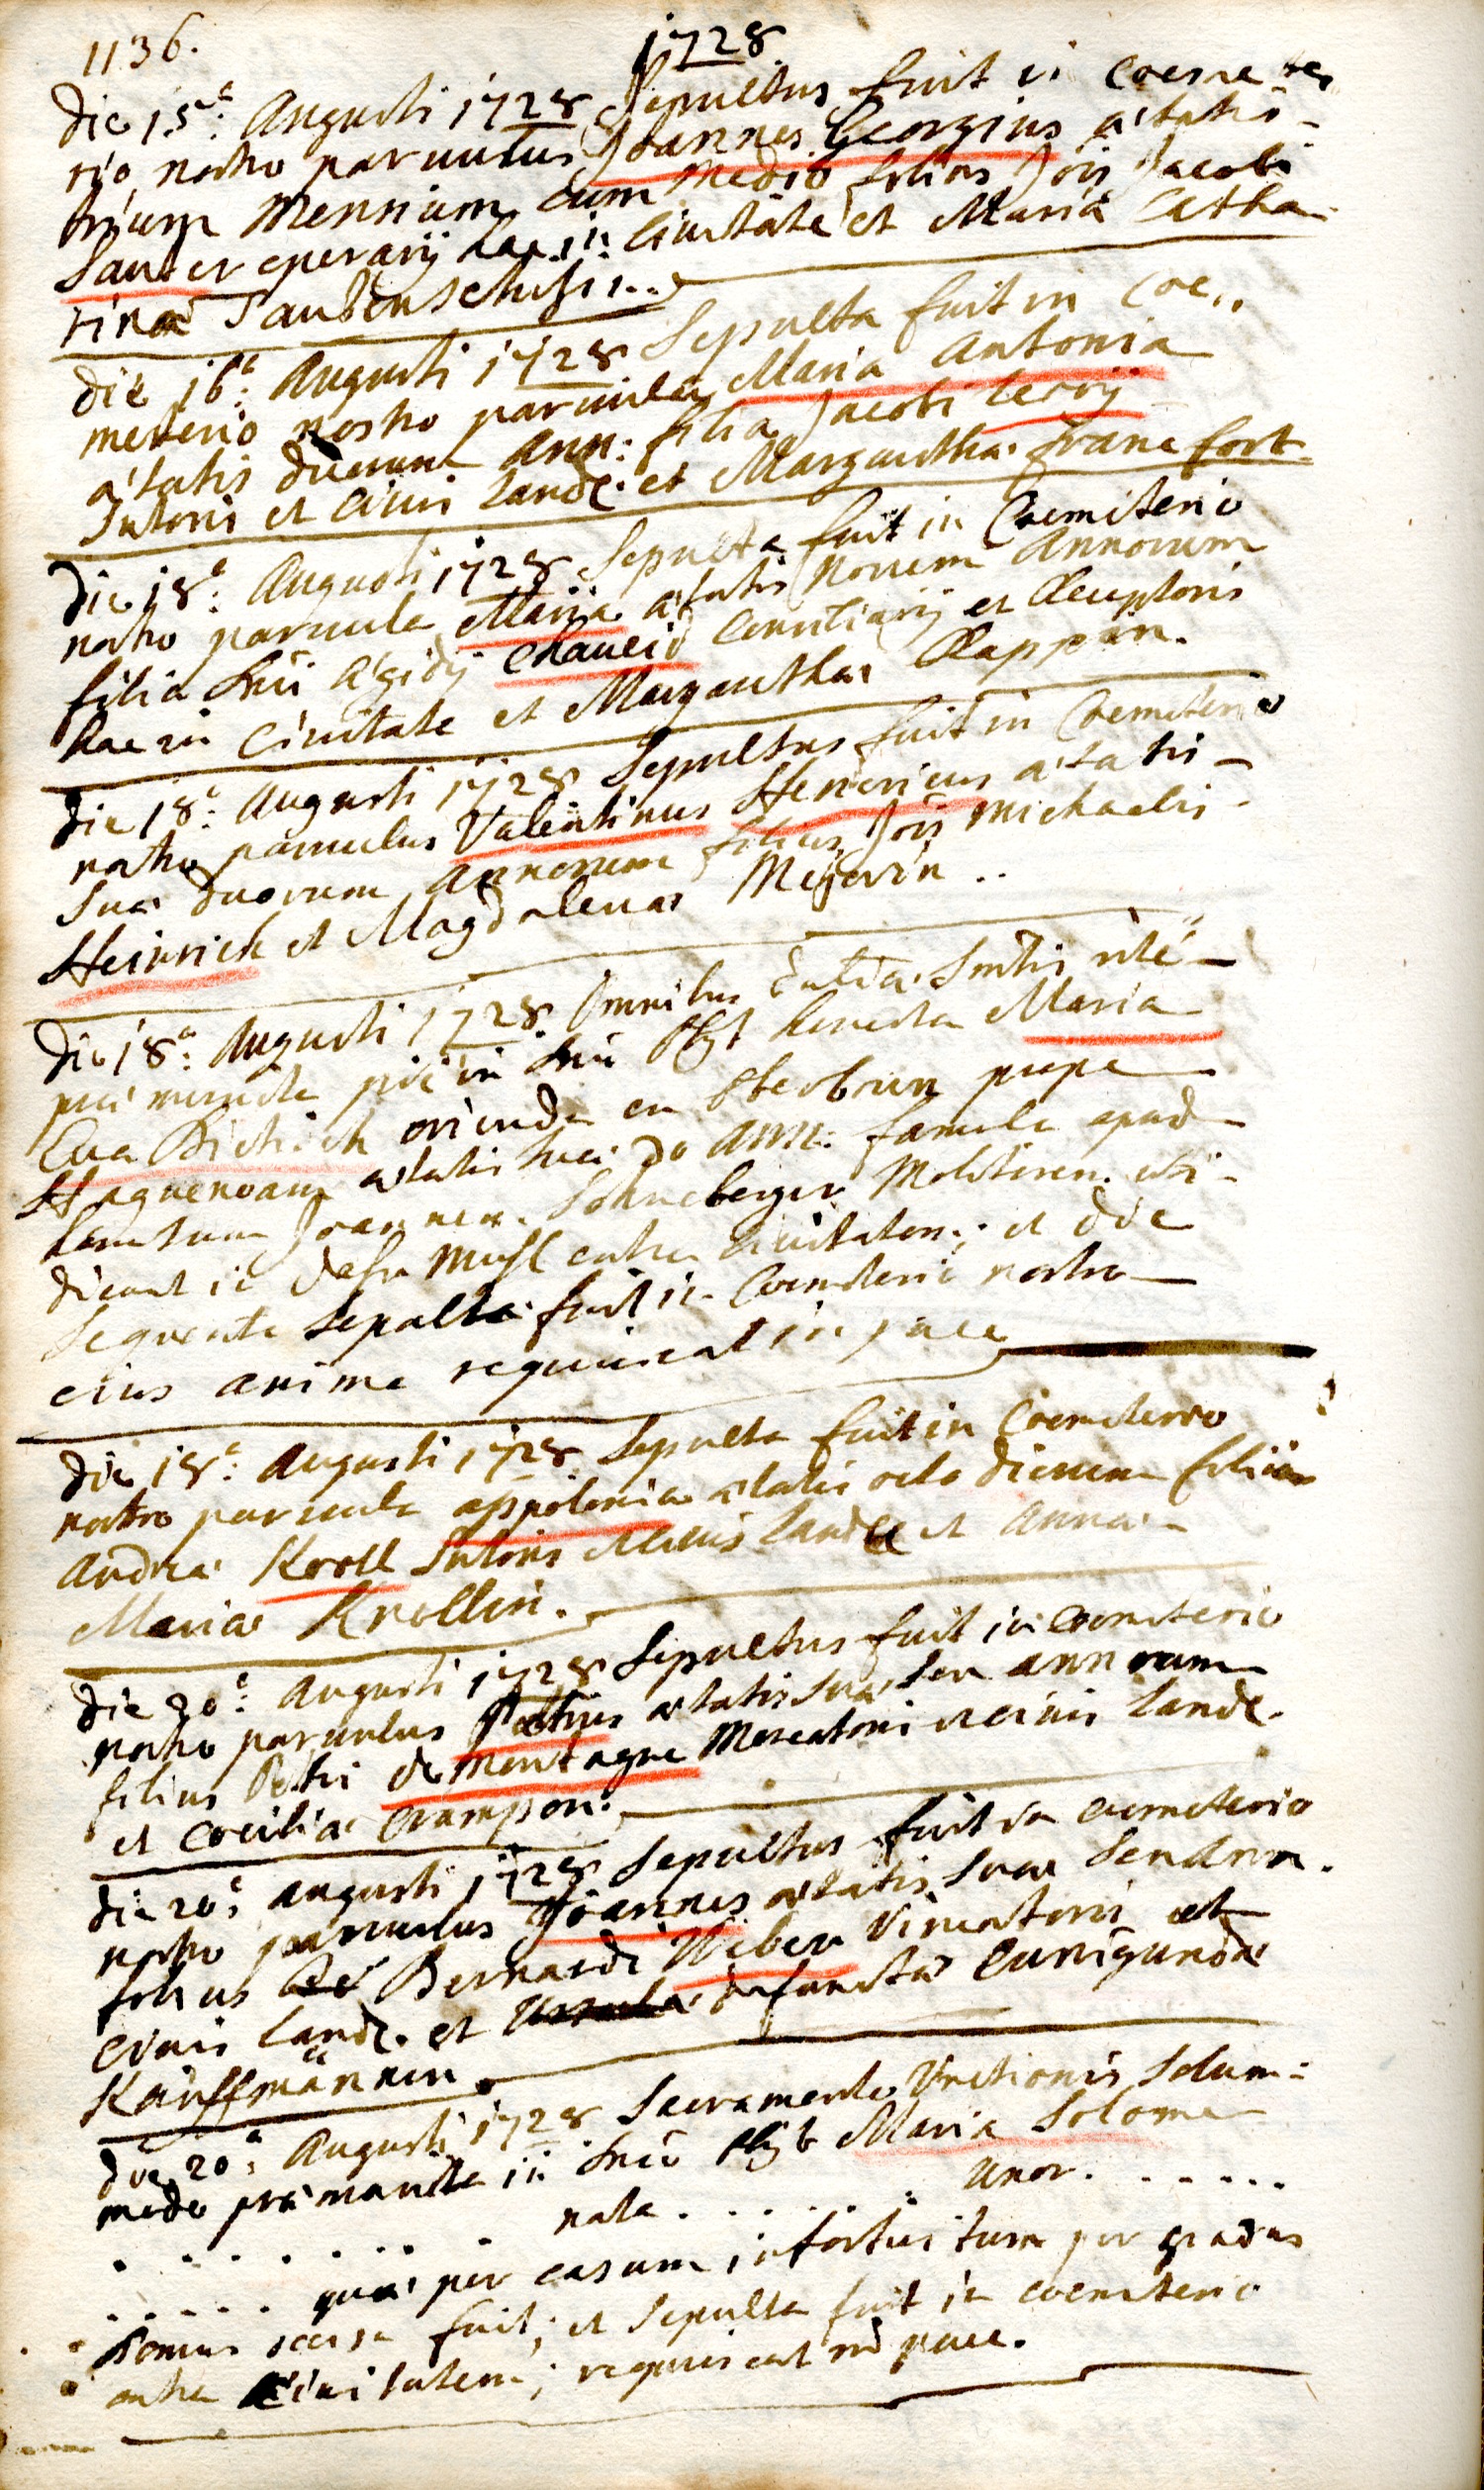 1136.
1728
Die 15ª: Augusti 1728 Sepultus fuit in Coemete
rio nostro parvulus Joannes Georgius ætatis
trium Mensium cum medio filius Jois Jacobi
Sauter operarij hac in Civitate et Maria Catha
rina
Die 16ª: Augusti 1728 Sepulta fuit in Coe,,
meterio nostro parvula Maria Antonia
ætatis duorum Ann: filia Jacobi
Sutoris et Civis Land: et Margaritha Francfort
Die 18ª: Augusti 1728 Sepulta fuit in Coemiterio
nostro parvula Maria ætatis Novem Annorum
filia Dni Ægidij et Receptoris
hac in Civitate et Margaritha Rappin.
Die 18ª: Augusti 1728 Sepultus fuit in Coemiterio
nostro parvulus Valentinus Henericus ætatis
Suæ duorum Annorum filius Jois Michaelis
Heinrich et Magdalena Meÿerin ..
Die 18ª: Augusti 1728 Omnibus rite
præmunita pie in Dno obyt honesta Maria
Eva oriunda ex prope
Haguenoam ætatis suæ Ann: famula apud
Joannem Schneberger
extra Civitatem; et die
Sequente Sepulta fuit in Coemiterio nostro
eius anima requiescat in pace
Die 18ª: Augusti 1728 Sepulta fuit in Coemiterio
nostro parvula appolonia ætatis octo dierum filia
Andreæ Kroll Sutoris et Civis Land et Anna
Maria Krollin.
Die 20ª: Augusti 1728 Sepultus fuit in Coemiterio
nostro parvulus Petrus ætatis Suæ Sex annorum
filius Petri de Montagne Mercatoris et Civis Land.
et Cœcilia Crampon.
Die 20ª: Augusti 1728 Sepultus fuit in Coemeterio
nostro parvulus Joannes ætatis Suæ
filius Bernardi Weber et
Civis Land. et defuncta Cunigunda
Kauffmännin.
Die 20ª: Augusti 1728 Sacramento Unctionis Solum=
modo præmunita in Dno obyt Maria Solome
. . . . . . . . nata . . . . . . uxor . . . . . .
. . . . . quæ per casum infortuitum per gradus
Domus fuit; et Sepulta fuit in coemiterio
extra Civitatem; requiescat in pace.